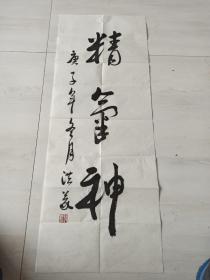 精氣神
庚子年冬月 洪義